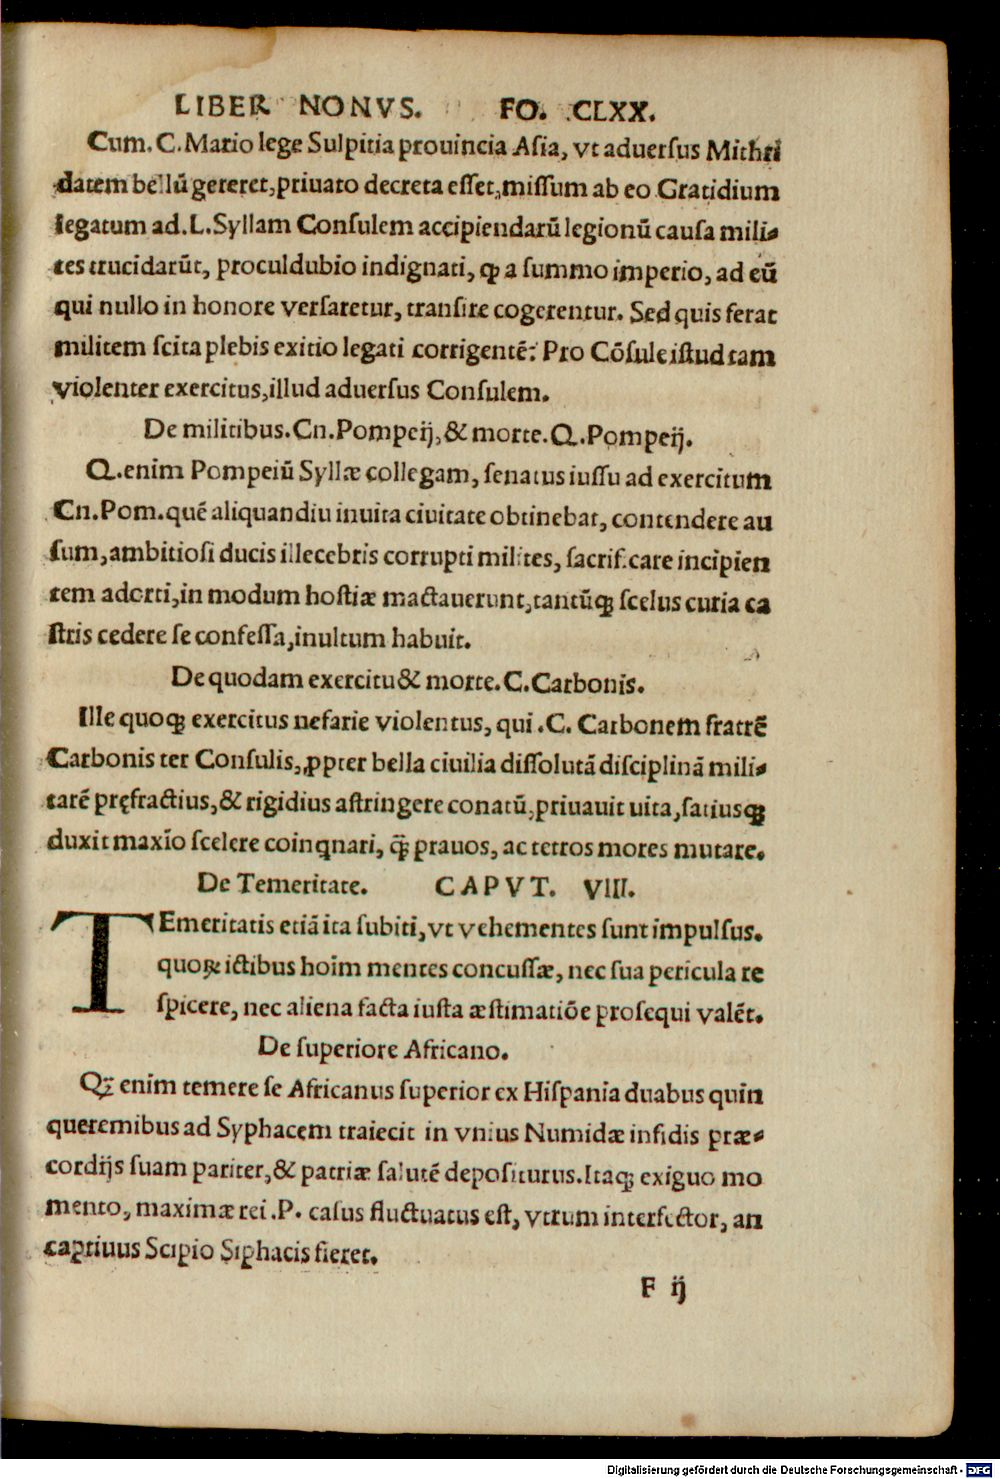 LIBER NONVS. FO. CLXX.
Cum. C. Mario lege Sulpitia prouincia Asia, vt aduersus Mithri
datem bellū gereret, priuato decreta esset, missum ab eo Gratidium
legatum ad. L. Syllam Consulem accipiendarū legionū causa mili⸗
tes trucidarūt, proculdubio indignati, ꝙ a summo imperio, ad eū
qui nullo in honore versaretur, transire cogerentur. Sed quis ferat
militem scita plebis exitio legati corrigentē: Pro Cōsule istud tam
violenter exercitus, illud aduersus Consulem.
De militibus. Cn. Pompeij, & morte. Q. Pompeij.
Q. enim Pompeiū Syllæ collegam, senatus iussu ad exercitum
Cn. Pom. quē aliquandiu inuita ciuitate obtinebat, contendere au
sum, ambitiosi ducis illecebris corrupti milites, sacrificare incipien
tem adorti, in modum hostiæ mactauerunt, tantūꝗ scelus curia ca
stris cedere se confessa, inultum habuit.
De quodam exercitu & morte. C. Carbonis.
Ille quoꝗ exercitus nefarie violentus, qui. C. Carbonem fratrē
Carbonis ter Consulis, ꝓpter bella ciuilia dissolutā disciplinā mili⸗
tarē pręfractius, & rigidius astringere conatū, priuauit uita, satiusꝗ
duxit maxīo scelere coinqnari, ꝗ̄ prauos, ac tetros mores mutare.
De Temeritate. CAPVT. VIII.
TEmeritatis etiā ita subiti, vt vehementes sunt impulsus.
quoꝝ ictibus hoīm mentes concussæ, nec sua pericula re
spicere, nec aliena facta iusta æstimatiōe prosequi valēt.
De superiore Africano.
Qꝫ enim temere se Africanus superior ex Hispania duabus quin
queremibus ad Syphacem traiecit in vnius Numidæ infidis præ⸗
cordijs suam pariter, & patriæ salutē depositurus. Itaꝗ exiguo mo
mento, maximæ rei. P. casus fluctuatus est, vtrum interfector, an
captiuus Scipio Siphacis fieret.
F ij
Digitalisierung gefördert durch die Deutsche Forschungsgemeinschaft - DFG